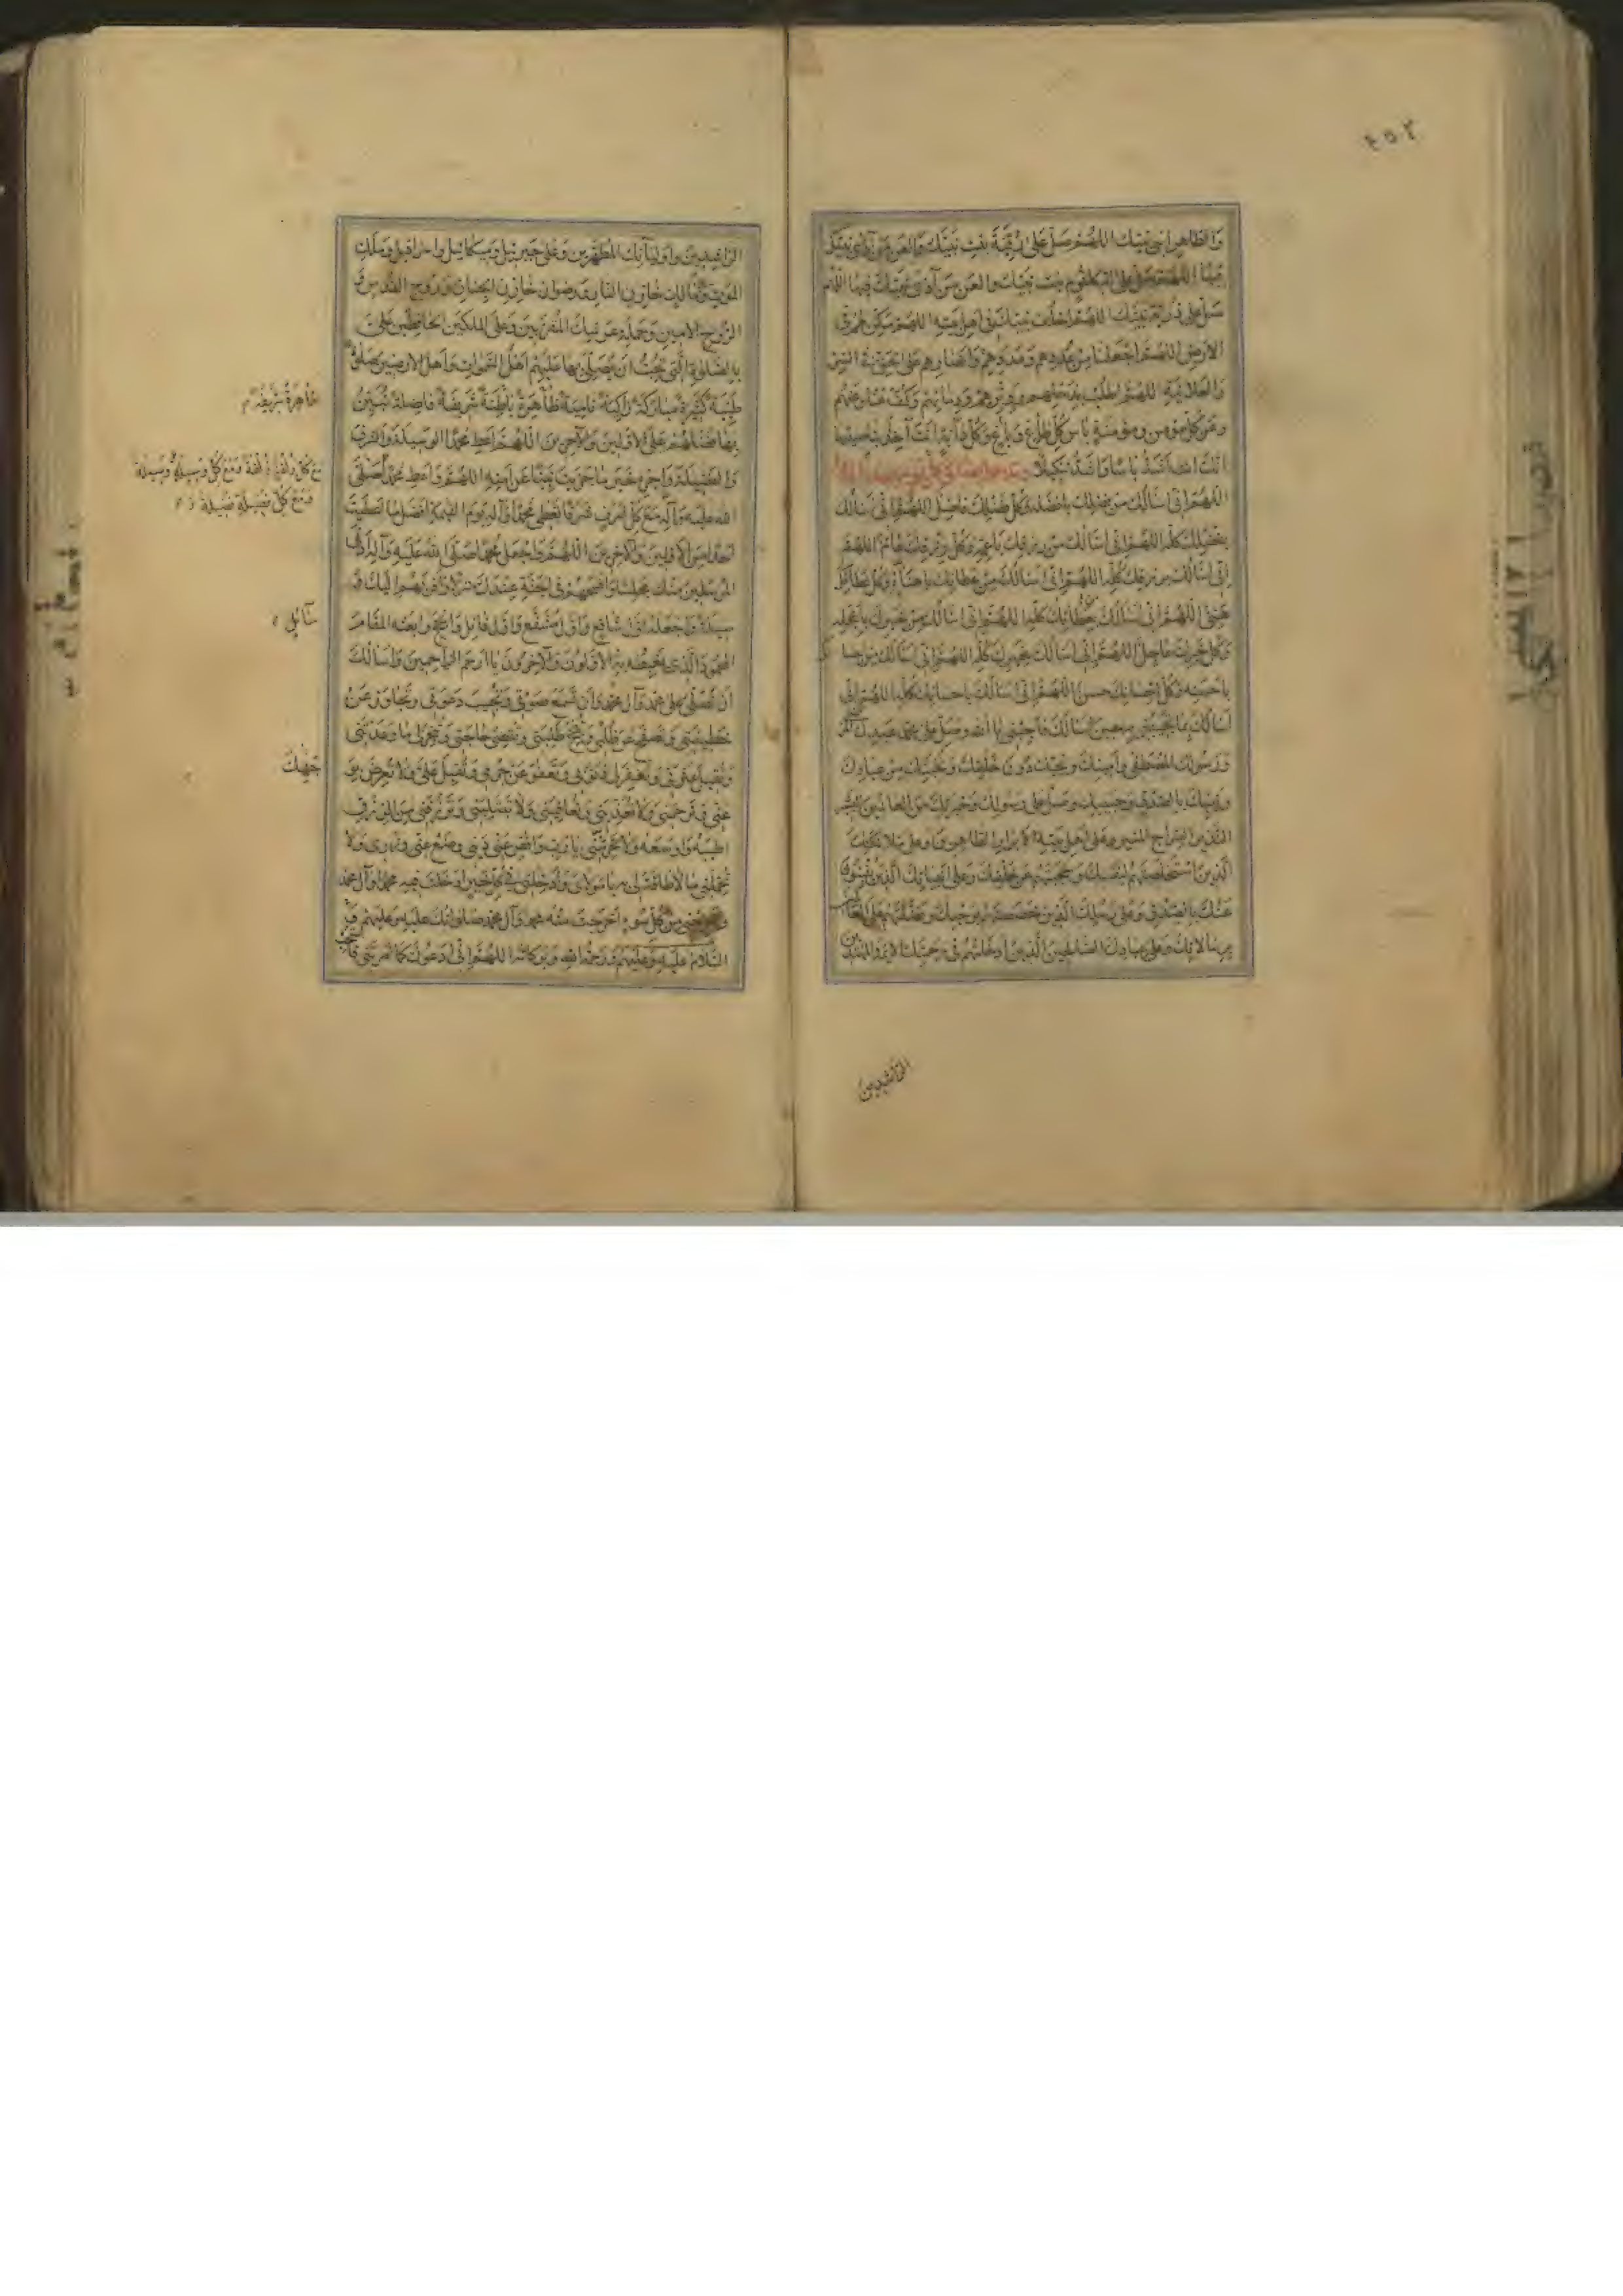 ٤٥٢
والطاهر ابنى نبيك اللهم صل على رقية بنت نبيك والعن من آذى نبيك
فيها اللهم صل على ام كلثوم بنت نبيك والعن من آذى نبيك فيها اللهم
صل على ذرية نبيك اللهم اخلف نبيك فى اهل بيته اللهم مكن لهم فى
الارض اللهم اجعلنا من عددهم ومددهم وانصارهم على الحق فى السر
والعلانية اللهم اطلب بذحلهم ووترهم ودمائهم وكف عنا وعنهم
وعن كل مؤمن ومؤمنة باس كل طاغ وباغ وكل دابة انت آخذ بناصيتها
انك انت اشد باسا واشد تنكيلا
اللهم انى اسالك من فضلك بافضله وكل فضلك فاضل اللهم انى اسالك
بفضلك كله اللهم انى اسالك من رزقك باعمه وكل رزقك عام اللهم
انى اسالك برزقك كله اللهم انى اسالك من عطائك باهناه وكل عطائك
هنئ اللهم انى اسالك بعطائك كله اللهم انى اسالك من خيرك باعجله
وكل خيرك عاجل اللهم انى اسالك بخيرك كله اللهم انى اسالك من احسانك
باحسنه وكل احسانك حسن اللهم انى اسالك باحسانك كله اللهم انى
اسالك بما تجيبنى به حين اسالك فاجبنى يا الله وصل على محمد عبدك
ورسولك المصطفى وامينك ونجيك دون خلقك ونجيبك من عبادك
ونبيك بالصدق وحبيبك وصل على رسولك وخيرتك من العالمين البشير
النذير السراج المنير وعلى اهل بيته الابرار الطاهرين وعلى ملائكتك
الذين استخلصتهم لنفسك وحجبتهم عن خلقك وعلى انبيائك الذين ينبئون
عنك بالصدق وعلى رسلك الذين خصصتهم بوحيك وفضلتهم على العالمين
برسالاتك وعلى عبادك الصالحين الذين ادخلتهم فى رحمتك الائمة المهتدين
الراشدين
الراشدين واوليائك المطهرين وعلى جبرئيل وميكائيل واسرافيل وملك
الموت ومالك خازن النار ورضوان خازن الجنان وروح القدس و
الروح الامين وحملة عرشك المقربين وعلى الملكين الحافظين على
بالصلوة التى تحب ان يصلى بها عليهم اهل السموات واهل الارضين صلوة
طيبة كثيرة مباركة زاكية نامية ظاهرة باطنة شريفة فاضلة تبين
بها فضلهم على الاولين والآخرين اللهم اعط محمدا الوسيلة والشرف
والفضيلة واجزه خير ما جزيت نبيا عن امته اللهم واعط محمدا صلى
الله عليه وآله مع كل شرف شرفا تعطى محمدا وآله يوم القيمة افضل ما اعطيت
احدا من الاولين والآخرين اللهم واجعل محمدا صلى الله عليه وآله ادنى
المرسلين منك مجلسا وافسحهم فى الجنة عندك منزلا واقربهم اليك و
سيلة واجعله اول شافع واول مشفع واول قائل وانجح وابعثه المقام
المحمود الذى يغبطه به الاولون والآخرون يا ارحم الراحمين واسالك
ان تصلى على محمد وآل محمد وان تسمع صوتى وتجيب دعوتى وتجاوز عن
خطيئتى وتصفح عن ظلمى وتنجح طلبتى وتقضى حاجتى وتنجز لى ما وعدتنى
وتقيل عثرتى وتغفر لى ذنوبى وتعفو عن جرمى وتقبل على ولا تعرض
عنى وترحمنى ولا تعذبنى وتعافينى ولا تبتلينى وترزقنى من الرزق
اطيبه واوسعه ولا تحرمنى يا رب واقض عنى دينى وضع عنى وزرى ولا
تحملنى ما لا طاقة لى به يا مولاى وادخلنى فى كل خير ادخلت فيه محمدا وآل محمد
واخرجنى من كل سوء اخرجت منه محمدا وآل محمد صلواتك عليه وعليهم
السلام عليه وعليهم ورحمة الله وبركاته اللهم انى ادعوك كما امرتنى
طاهرة شريفة
مع كل زلفة زلفة ومع كل وسيلة وسيلة
ومع كل فضيلة فضيلة
سائل
بوجهك